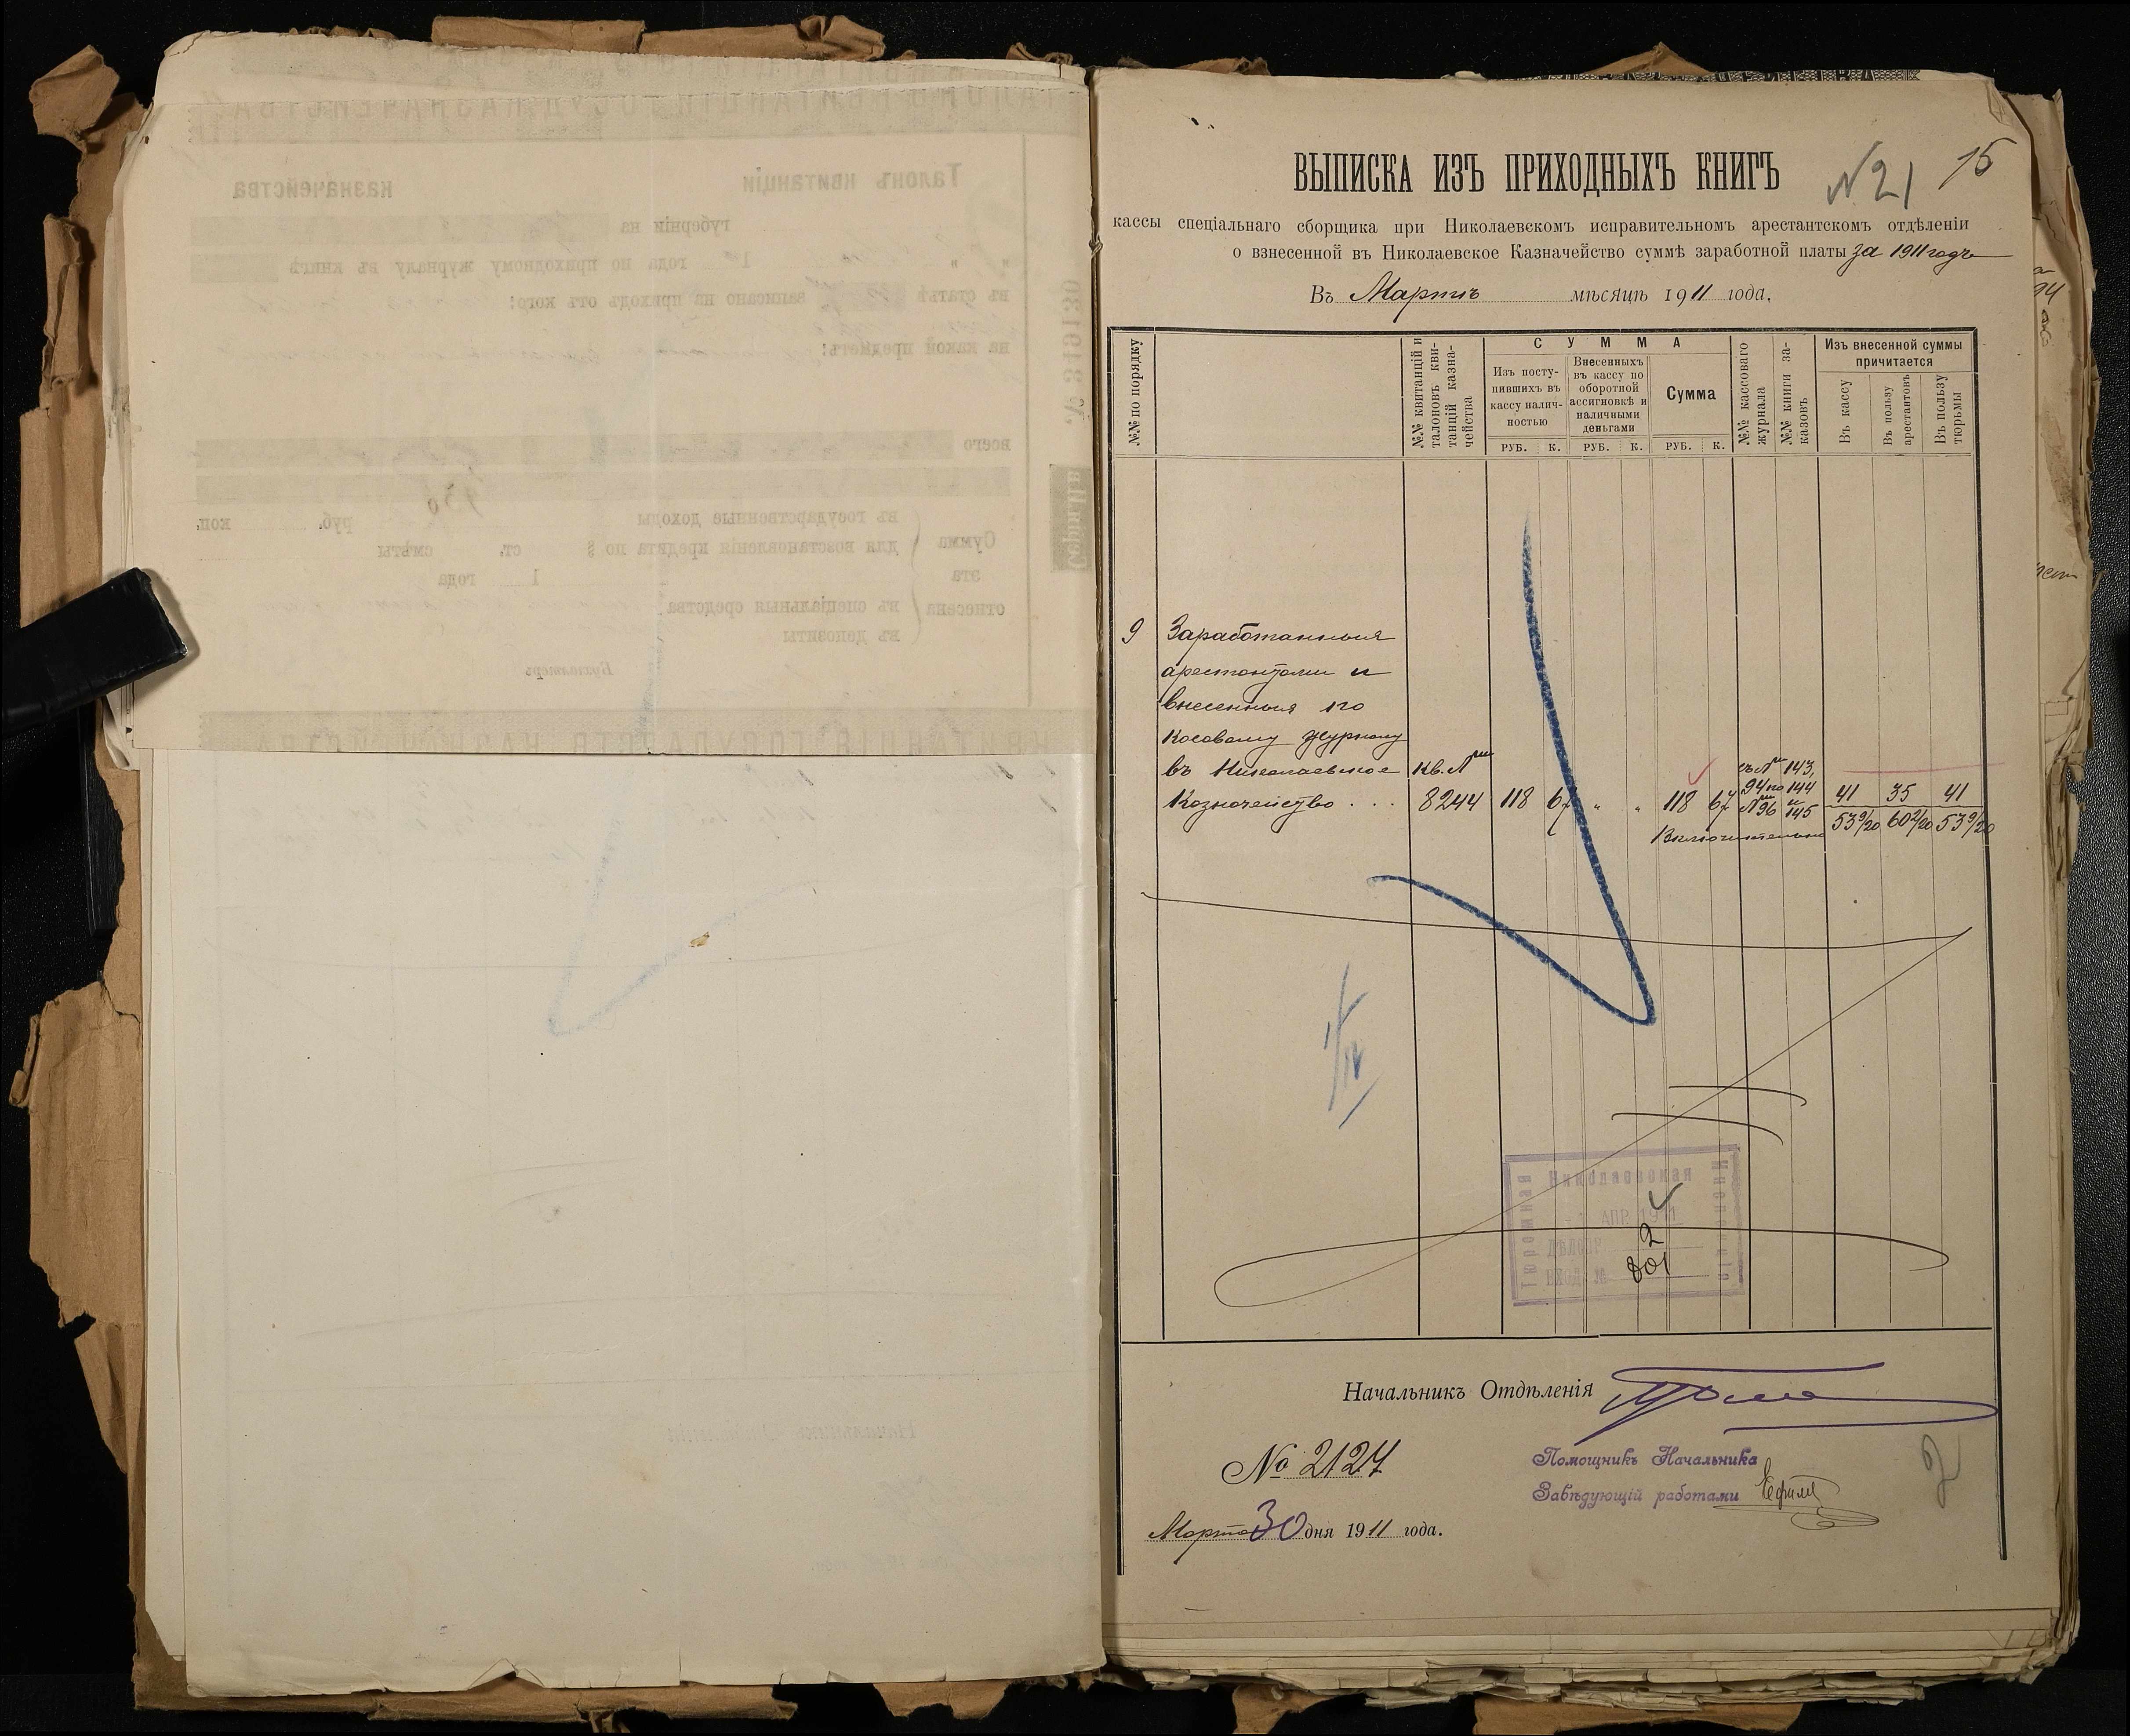 ВЫПИСКА ИЗЪ ПРИХОДНЫХЪ КНИГЪ
№ 21
15
кассы спеціальнаго сборщика при Николаевскомъ исправительномъ арестантскомъ отдѣленіи
о взнесенной въ Николаевское Казначейство суммѣ заработной платы за 1911 годъ
Въ Мартѣ мѣсяцѣ 1911 года.
№№ по порядку
№№ квитанцій и талоновъ квитанцій казначейства
СУММА
Изъ поступившихъ въ кассу наличностью
Внесенныхъ въ кассу по оборотной ассигновкѣ и наличными деньгами
Сумма
РУБ. К. РУБ. К. РУБ. К.
№№ кассоваго журнала
№№ книги заказовъ
Изъ внесенной суммы причитается
Въ кассу
Въ пользу арестантовъ
Въ пользу тюрьмы
9 Заработанныя
арестантами и
внесенныя по
Касовому журналу
въ Николаевское кв. № съ № 143,
94 по 144
Казначейство . . . 8244 118 67 " " 118 67 № 96 и 145 41 35 41
Включительно 53 9/20 60 2/20 53 9/20
Николаевская
Тюремная
Инспекція
1 АПР. 1911
ДѢЛО № 2
ВХОД. № 801
Начальникъ Отдѣленія
№ 2127
Помощникъ Начальника
Завѣдующій работами
Марта 30 дня 1911 года.
2
Талонъ квитанціи казначейства
губерніи на
1 года по приходному журналу въ книгѣ
въ статьѣ записано на приходъ отъ кого:
на какой предметъ:
№ 349130
всего
930
Серія
Сумма эта отнесена
въ государственные доходы руб. коп.
для возстановленія кредита по § ст. смѣты
1 года
къ спеціальныя средства
въ депозиты
Бухгалтеръ
КВИТАНЦІЯ ГОСУДАРСТВ. КАЗНАЧЕЙСТВА